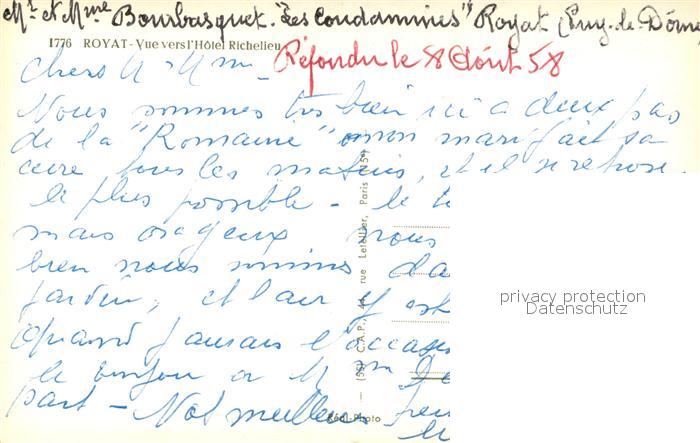 Mr et Mme Bourbasquet. "Les Coudamines" Royat (Puy-le-Dôme
1776 ROYAT - Vue vers l'Hôtel Richelieu
Répondu le 8 Août 58
Chers M Mme
Nous sommes très bien ici a deux pas
de la "Romaine" mon mari fait sa
cure tous les matins, et il se repose
le plus possible - le t
mais orageux nous
bien nous sommes da
jardin, et l'air y est
Quand j'aurais l'occasi
le bonjour a M
part - Nos meilleur
(S. C.A.P., 44, rue Letellier, Paris (15e)
Réal-Photo
privacy protection
Datenschutz